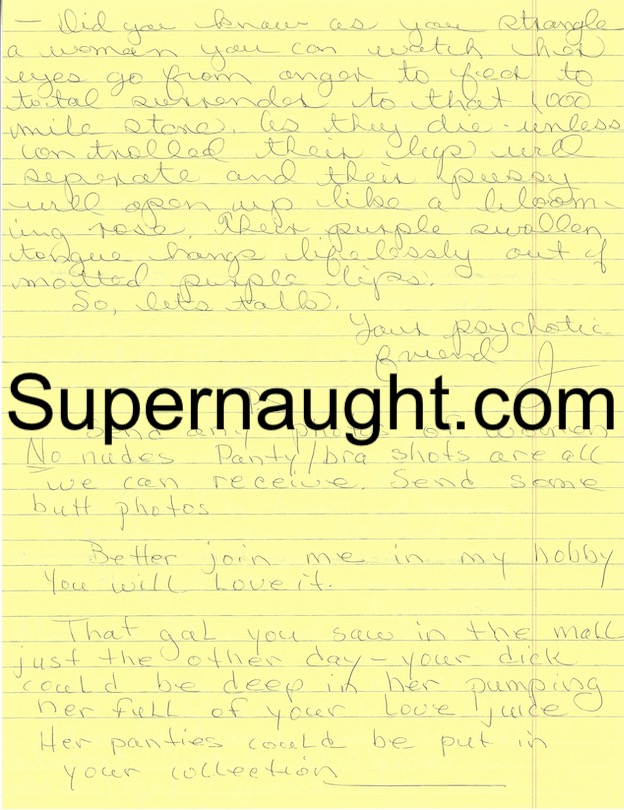 — Did you know as you strangle
a woman you can watch her
eyes go from anger to fear to
total surrender to that 1000
mile stare. As they die - unless
controlled their legs will
seperate and their pussy
will open up like a bloom-
ing rose. Their purple swollen
tongue hangs lifelessly out of
motted purple lips.
So, lets talk.
Your psychotic
friend J
Supernaught.com
Send any photos of women
No nudes Panty/bra shots are all
we can receive. Send some
butt photos
Better join me in my hobby
You will Love it.
That gal you saw in the mall
just the other day - your dick
could be deep in her pumping
her full of your Love juice
Her panties could be put in
your collection